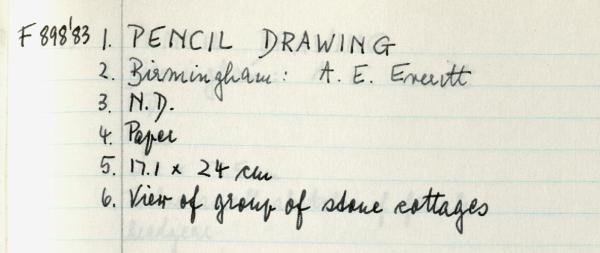 F 898'83 1. PENCIL DRAWING
2. Birmingham: A. E. Everitt
3. N.D.
4. Paper
5. 17.1 x 24 cm
6. View of group of stone cottages